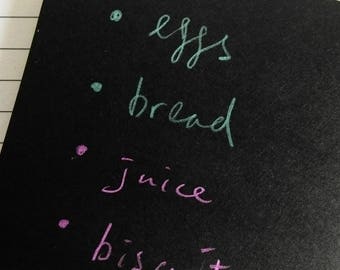 • eggs
• bread
• juice
• biscuit